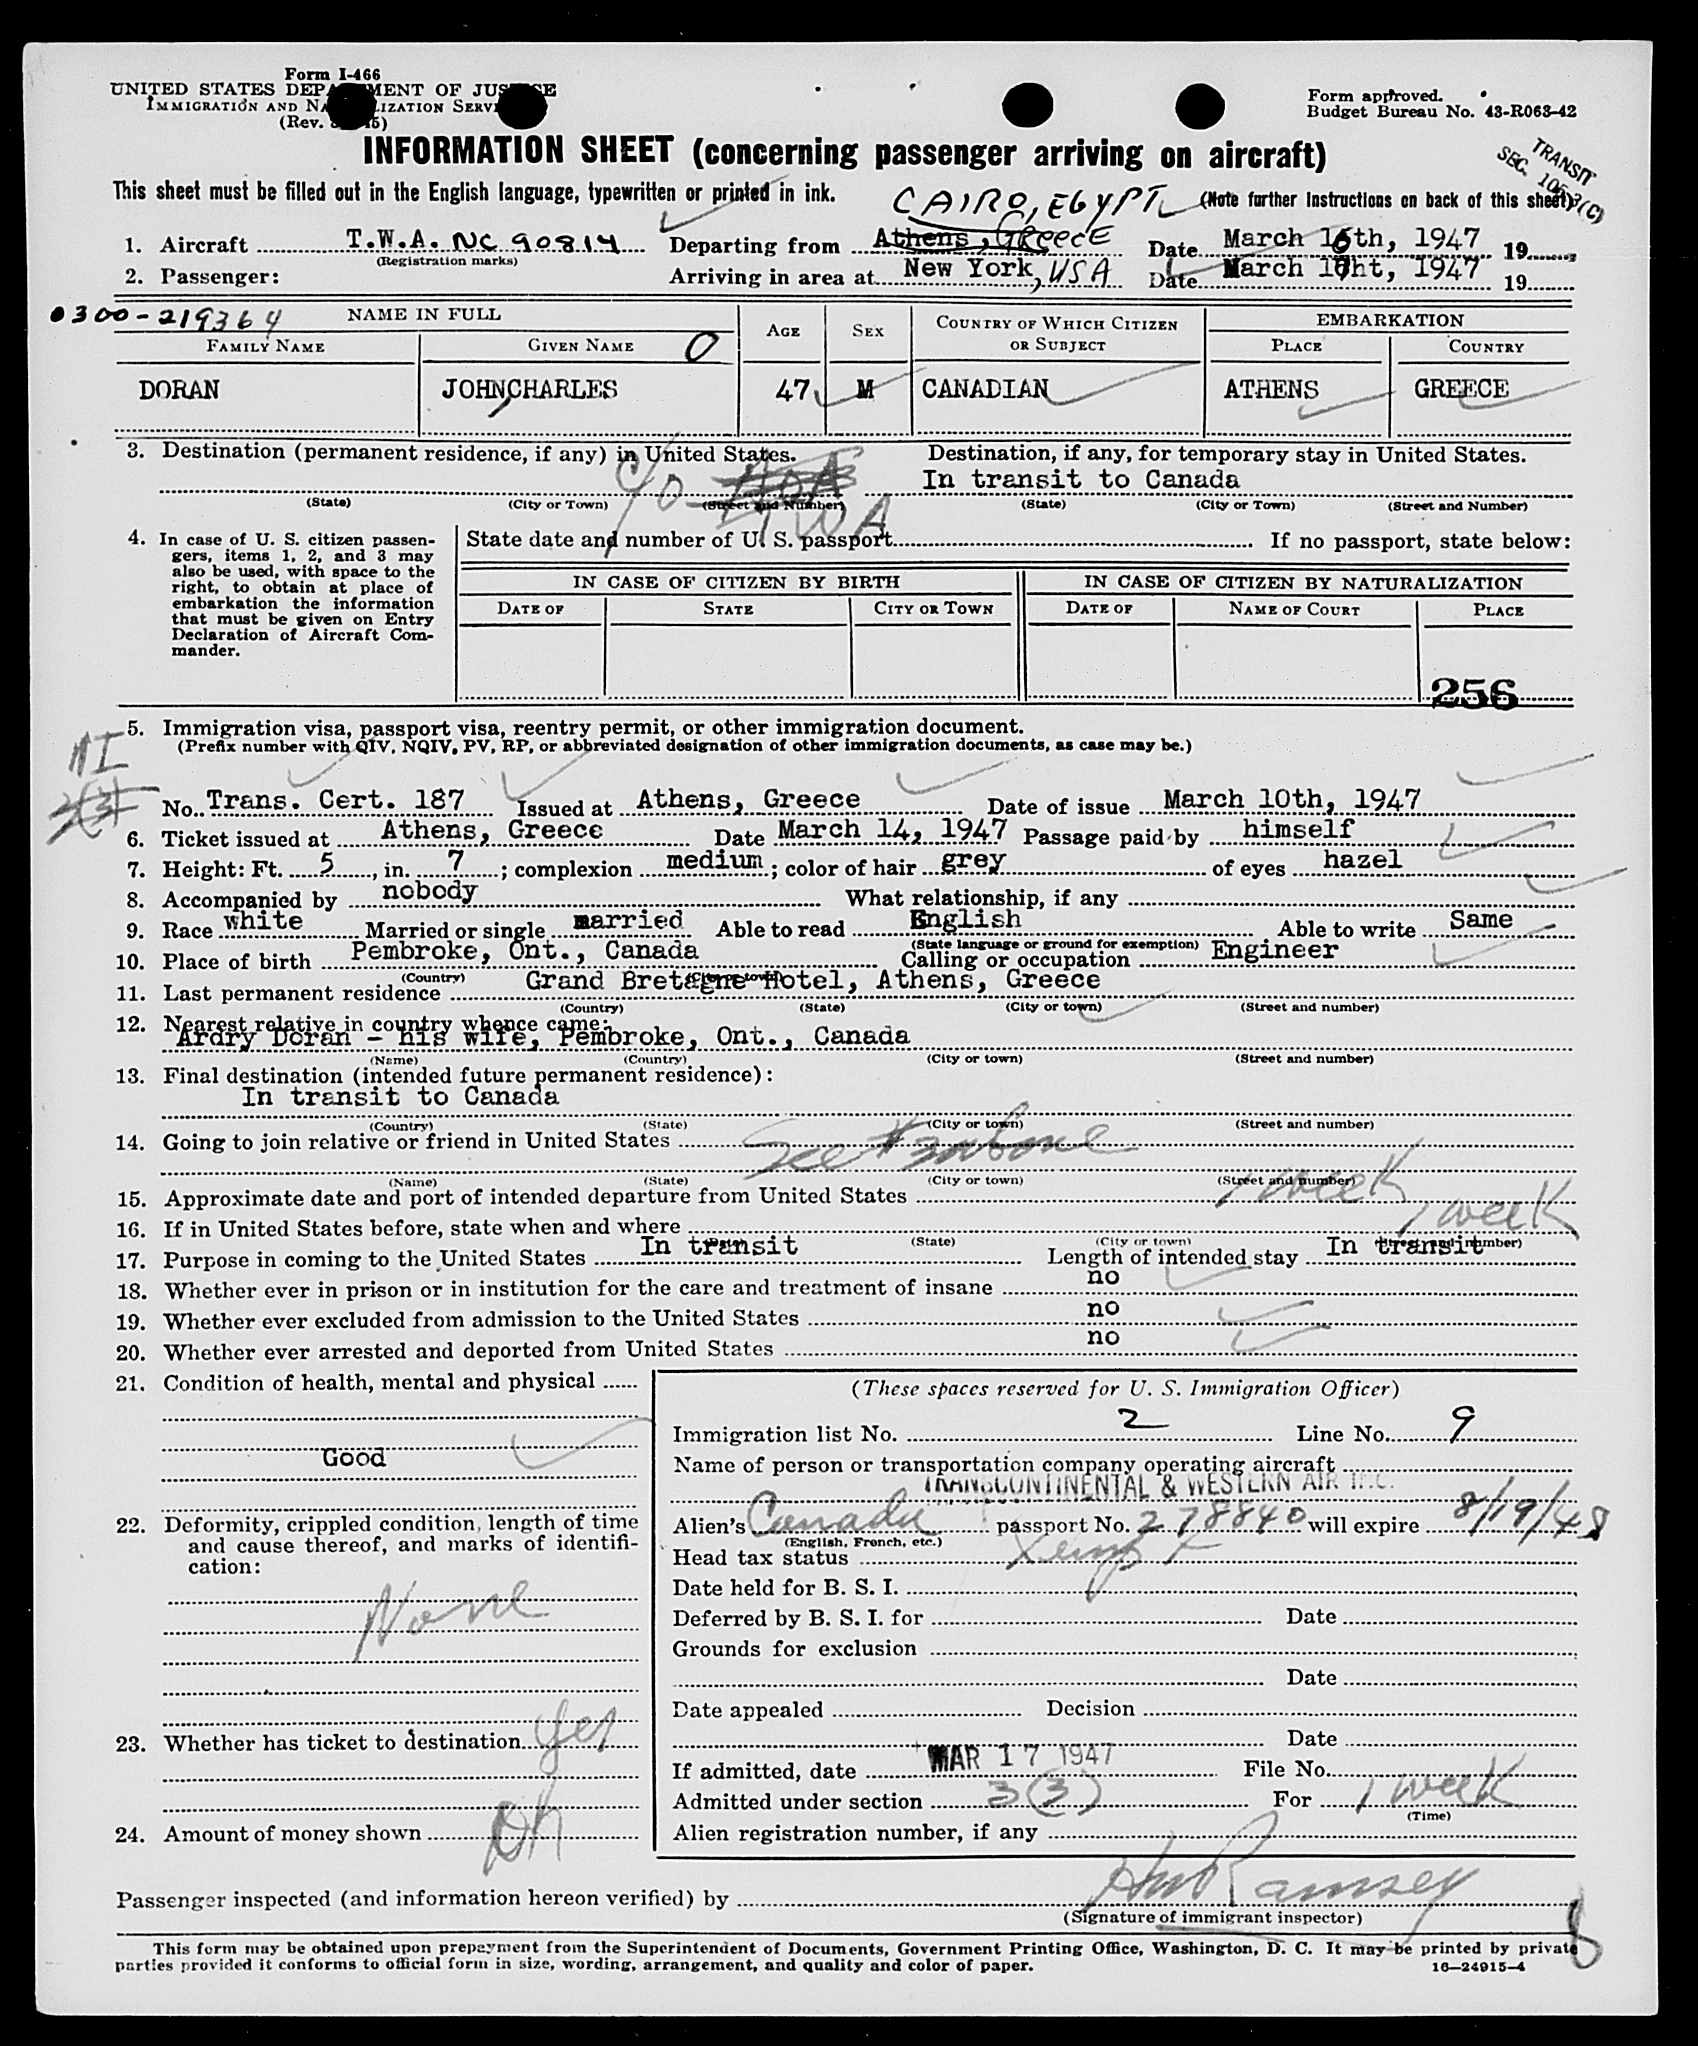 Form I-466
UNITED STATES DEPARTMENT OF JUSTICE
IMMIGRATION AND NATURALIZATION SERVICE
(Rev.
Form approved.
Budget Bureau No. 43-R063-42
INFORMATION SHEET (concerning passenger arriving on aircraft)
TRANSIT
SEC. 105.3(C)
This sheet must be filled out in the English language, typewritten or printed in ink.
(Note further instructions on back of this sheet)
CAIRO, EGYPT
1. Aircraft T.W.A. NC 90814 Departing from Athens, GREECE Date March 16th, 1947 19
(Registration marks)
2. Passenger: Arriving in area at New York, USA Date March 17ht, 1947 19
0300-219364 NAME IN FULL AGE SEX COUNTRY OF WHICH CITIZEN OR SUBJECT EMBARKATION
FAMILY NAME GIVEN NAME O PLACE COUNTRY
DORAN JOHN,CHARLES 47 M CANADIAN ATHENS GREECE
3. Destination (permanent residence, if any) in United States. Destination, if any, for temporary stay in United States.
c/o TWA In transit to Canada
(State) (City or Town) (Street and Number) (State) (City or Town) (Street and Number)
4. In case of U. S. citizen passengers, items 1, 2, and 3 may also be used, with space to the right, to obtain at place of embarkation the information that must be given on Entry Declaration of Aircraft Commander.
State date and number of U. S. passport If no passport, state below:
IN CASE OF CITIZEN BY BIRTH IN CASE OF CITIZEN BY NATURALIZATION
DATE OF STATE CITY OR TOWN DATE OF NAME OF COURT PLACE
256
5. Immigration visa, passport visa, reentry permit, or other immigration document.
(Prefix number with QIV, NQIV, PV, RP, or abbreviated designation of other immigration documents, as case may be.)
No. Trans. Cert. 187 Issued at Athens, Greece Date of issue March 10th, 1947
6. Ticket issued at Athens, Greece Date March 14, 1947 Passage paid by himself
7. Height: Ft. 5, in. 7; complexion medium; color of hair grey of eyes hazel
8. Accompanied by nobody What relationship, if any
9. Race white Married or single married Able to read English Able to write Same
(State language or ground for exemption)
10. Place of birth Pembroke, Ont., Canada Calling or occupation Engineer
(Country) (City or town)
11. Last permanent residence Grand Bretagne Hotel, Athens, Greece
(Country) (State) (City or town) (Street and number)
12. Nearest relative in country whence came:
Ardry Doran - his wife, Pembroke, Ont., Canada
(Name) (Country) (City or town) (Street and number)
13. Final destination (intended future permanent residence):
In transit to Canada
(Country) (State) (City or town) (Street and number)
14. Going to join relative or friend in United States See #3 above
(Name) (State) (City or town) (Street and number)
15. Approximate date and port of intended departure from United States 1 week
16. If in United States before, state when and where 1 week
(Date) (State) (City or town) (Street and number)
17. Purpose in coming to the United States In transit Length of intended stay In transit
18. Whether ever in prison or in institution for the care and treatment of insane no
19. Whether ever excluded from admission to the United States no
20. Whether ever arrested and deported from United States no
21. Condition of health, mental and physical
Good
22. Deformity, crippled condition, length of time and cause thereof, and marks of identification:
None
23. Whether has ticket to destination Yes
24. Amount of money shown OK
(These spaces reserved for U. S. Immigration Officer)
Immigration list No. 2 Line No. 9
Name of person or transportation company operating aircraft
TRANSCONTINENTAL & WESTERN AIR INC.
Alien's Canada passport No. 278840 will expire 8/19/48
(English, French, etc.)
Head tax status
Date held for B. S. I.
Deferred by B. S. I. for Date
Grounds for exclusion
Date
Date appealed Decision
Date
If admitted, date MAR 17 1947 File No.
Admitted under section 3(3) For 1 week
(Time)
Alien registration number, if any
Passenger inspected (and information hereon verified) by Ramsey
(Signature of immigrant inspector)
This form may be obtained upon prepayment from the Superintendent of Documents, Government Printing Office, Washington, D. C. It may be printed by private
parties provided it conforms to official form in size, wording, arrangement, and quality and color of paper. 16—24915-4